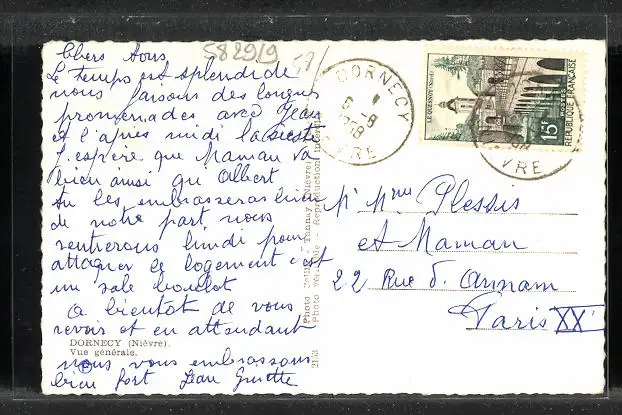 Chers tous
5829/9
58/
Le temps est splendide
nous faisons des longues
promenades avec Jean
et l'après midi la sieste
J'espère que Maman va
bien ainsi que Albert
tu les embrasseras bien
de notre part nous
rentrerons lundi pour
attaquer le logement c'est
un sale boulot
a bientot de vous
revoir et en attendant
DORNECY (Nièvre).
Vue générale.
nous vous embrassons
bien fort Jean
2153
Photo véritable - Reproduction interdite
DORNECY
NIÈVRE
LE QUESNOY (Nord)
15F
POSTES
REPUBLIQUE FRANÇAISE
VRE
Mr Mme Plessis
et Maman
22 Rue d'Annam
Paris XXe